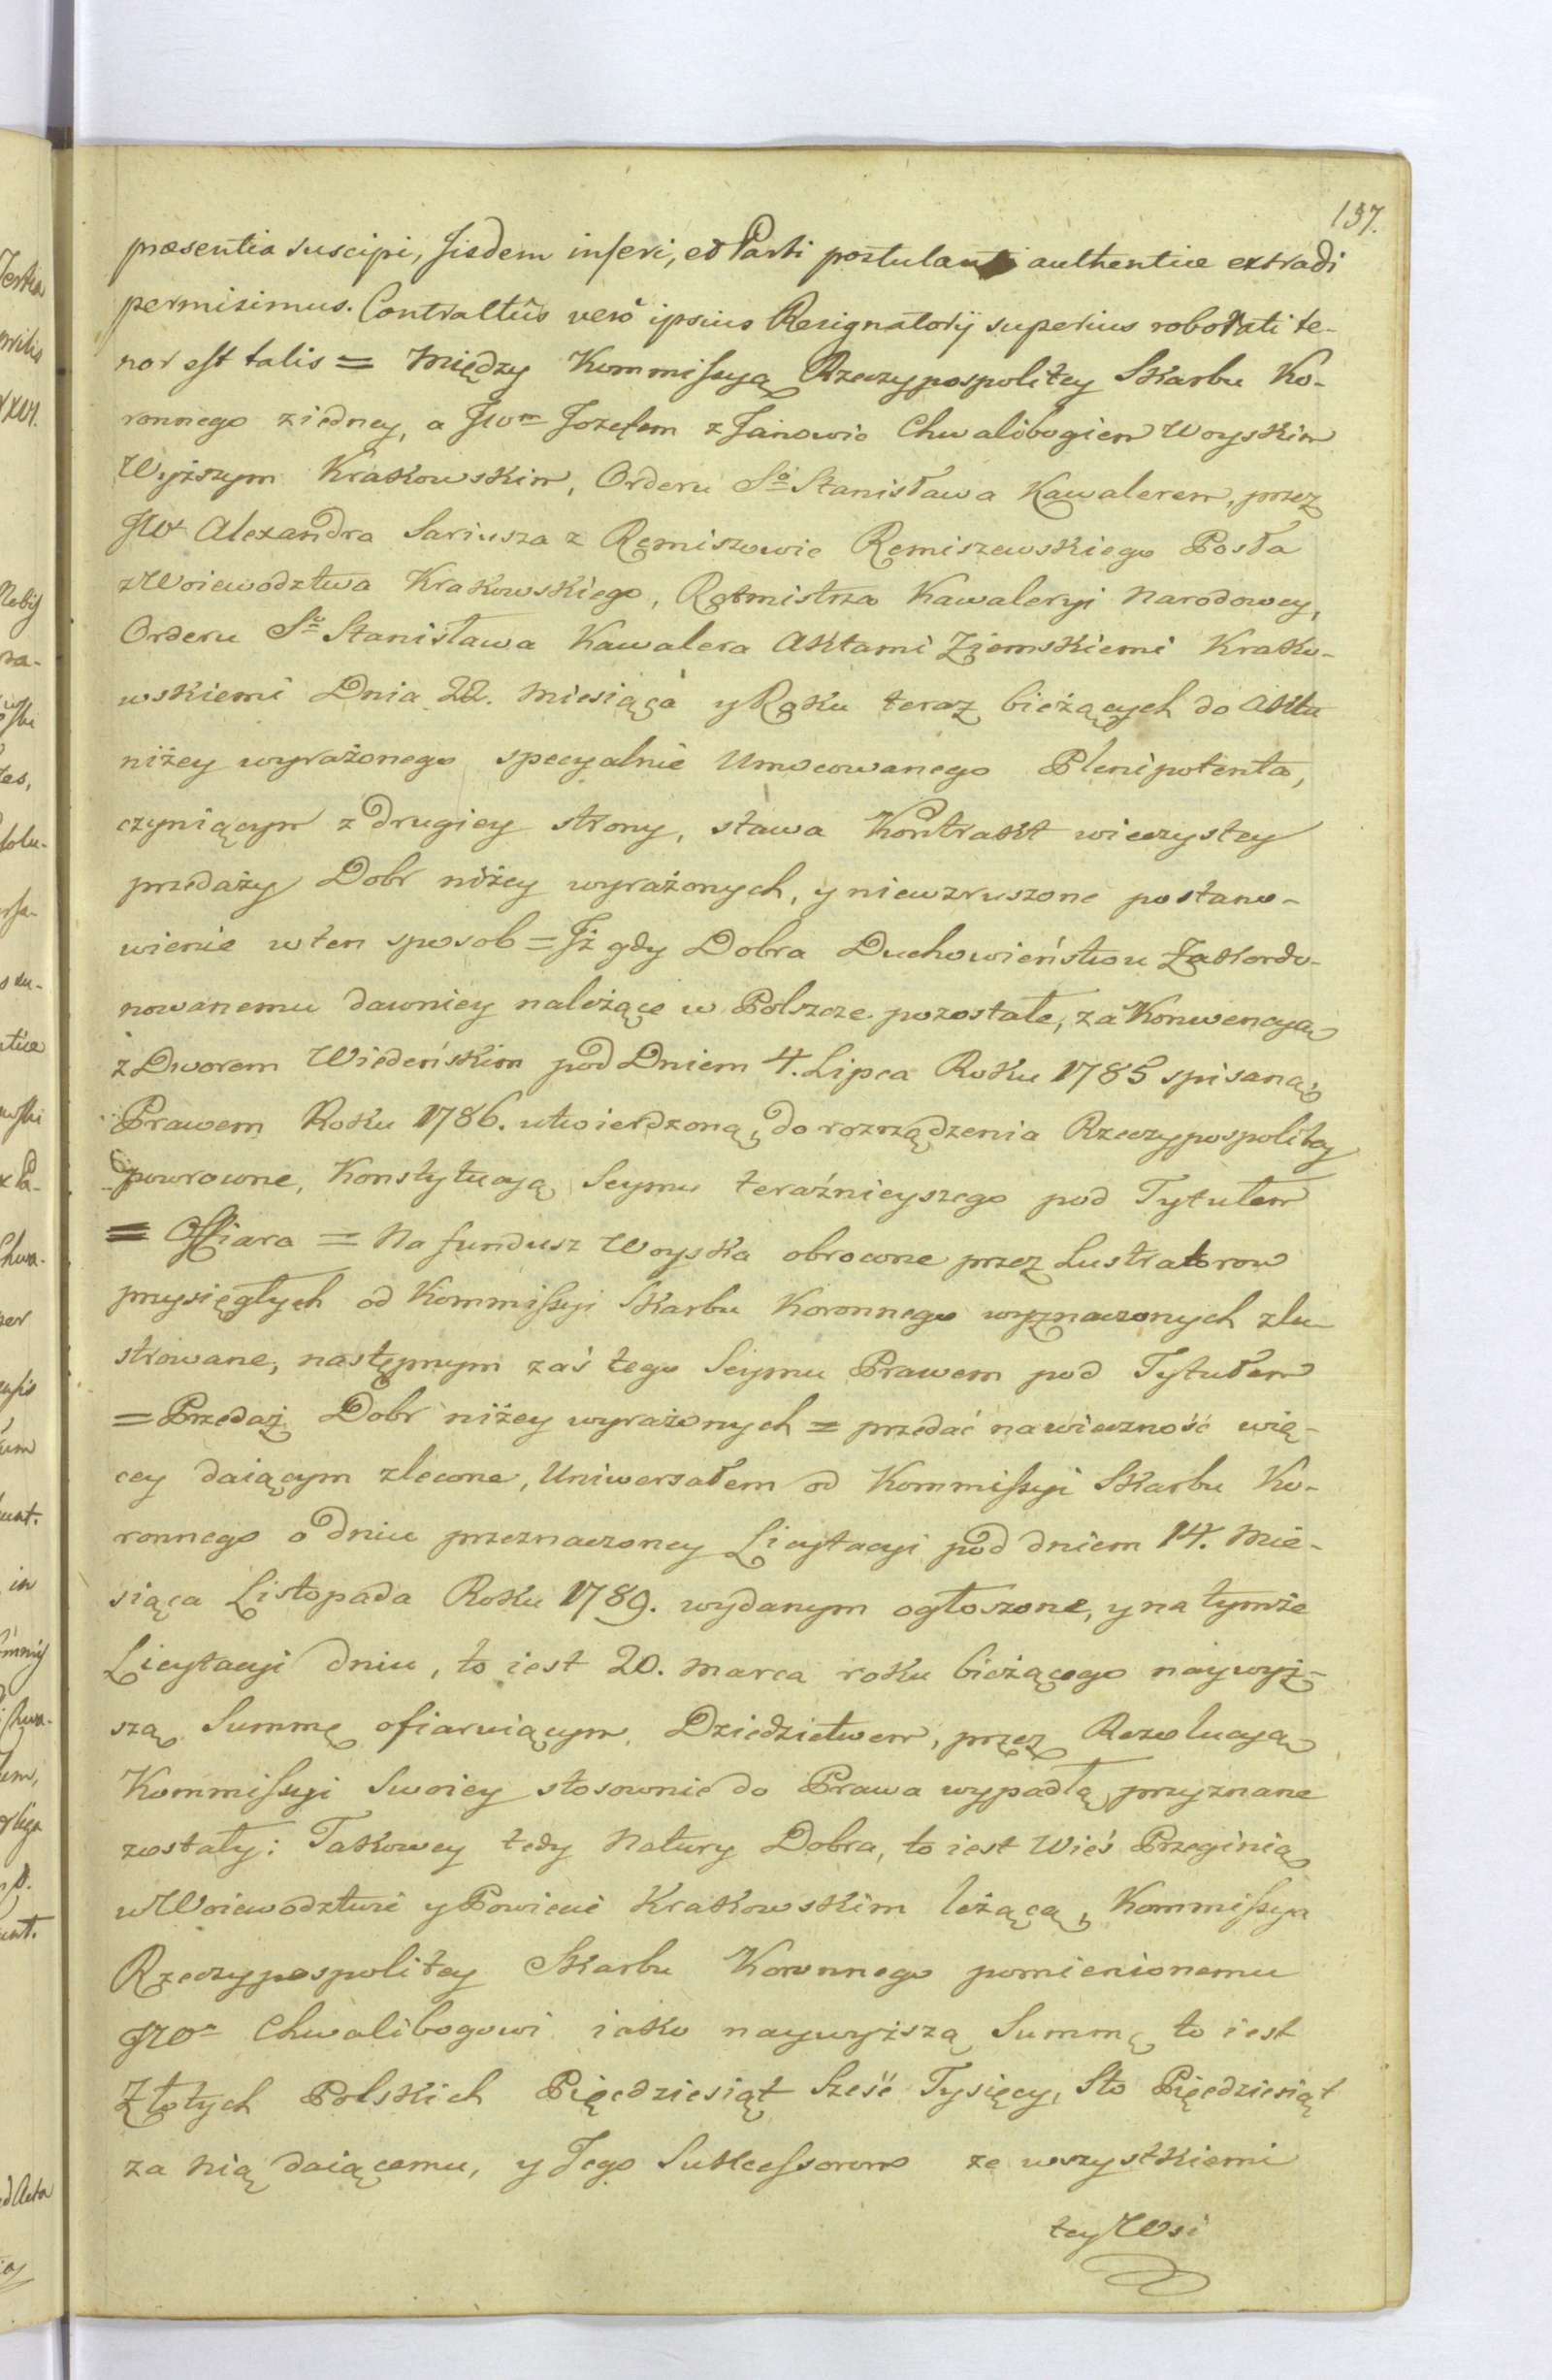 137.
præsentia suscipi, Jisdem inseri, et Parti postulanti authentice extradi
permisimus. Contractûs verò ipsius Resignatorij superius roborati te-
nor est talis = Między Kommissyą Rzeczypospolitey Skarbu Ko-
ronnego ziedney, a JWm Jozefem z Janowic Chwalibogiem Woyskim
Wyższym Krakowskim, Orderu So Stanisława Kawalerem, przez
JW Alexandra Sariusza z Remiszowic Remiszewskiego Posła
z Woiewodztwa Krakowskiego, Rotmistrza Kawaleryi Narodowey,
Orderu So Stanisława Kawalera Aktami Ziemskiemi Krako-
wskiemi Dnia 22. Miesiąca y Roku teraz bieżących do Aktu
niżey wyrażonego specyalnie Umocowanego Plenipotenta,
czyniącym z drugiey strony, stawa Kontrakt wieczystey
przedaży Dobr niżey wyrażonych, y niewzruszone postano-
wienie w ten sposob = Iż gdy Dobra Duchowieństwu Zakordo-
nowanemu dawniey należące w Polszcze pozostałe, za Konwencyą
z Dworem Wiedeńskim pod Dniem 4. Lipca Roku 1785 spisaną,
Prawem Roku 1786. utwierdzoną, do rozrządzenia Rzeczypospolitey
powrocone, Konstytucyą Seymu teraźnieyszego pod Tytułem
= Offiara = Na fundusz Woyska obrocone przez Lustratorow
przysięgłych od Kommissyi Skarbu Koronnego wyznaczonych zlu-
strowane, następnym zaś tego Seymu Prawem pod Tytułem
= Przedaż Dobr niżey wyrażonych = przedać na wieczność wię-
cey daiącym zlecone, Uniwersałem od Kommissyi Skarbu Ko-
ronnego o dniu przeznaczoney Licytacyi pod dniem 14. Mie-
siąca Listopada Roku 1789. wydanym ogłoszone, y na tymże
Licytacyi dniu, to iest 20. Marca roku bieżącego naywyż-
szą Summę ofiaruiącym Dziedzictwem, przez Rezolucyą
Kommissyi Swoiey stosownie do Prawa wypadłą przyznane
zostały: Takowey tedy Natury Dobra, to iest Wieś Przeginią
w Woiewodztwie y Powiecie Krakowskim leżącą, Kommissya
Rzeczypospolitey Skarbu Koronnego pomienionemu
JWu Chwalibogowi iako naywyższą Summę to iest
Złotych Polskich Pięćdziesiąt Sześć Tysięcy, Sto Pięćdziesiąt
za nią daiącemu, y Jego Sukcessorom ze wszystkiemi
tey Wsi